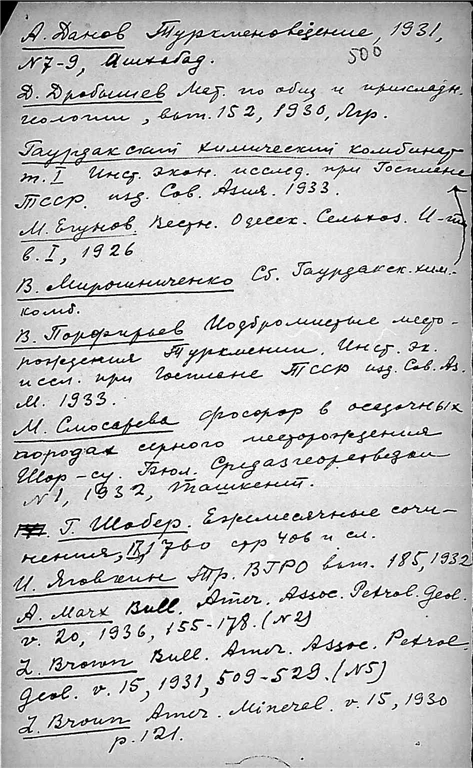 А. Данов Туркменоведение, 1931,
500
N7-9, Ашхабад.
Д. Дробышев Мат. по общ и прикладн.
геологии, вып. 152, 1930, Лгр.
Гаурдакский химический комбинат
т. I Инст. экон. исслед. при Госплане
ТССР. изд. Сов. Азия. 1933.
М. Егунов. Вестн. Одесск. Сельхоз. И-та
в. I, 1926
В. Мирошниченко Сб. Гаурдакск. хим.
комб.
В. Порфирьев Иодбромистые место-
рождения Туркмении. Инст. эк.
иссл. при Госплане ТССР изд. Сов. Аз.
М. 1933.
М. Слюсарева фосфор в осадочных
породах серного месторождения
Шор-су. Бюл. Средазгеоразведки
N1, 1932, Ташкент.
Г. Шобер. Ежемесячные сочи-
нения, II, 1760 стр 406 и сл.
И. Яговкин Тр. ВГРО вып. 185, 1932
A. Marx Bull. Amer. Assoc. Petrol. Geol.
v. 20, 1936, 155-178. (N2)
L. Brown Bull. Amer. Assoc. Petrol.
Geol. v. 15, 1931, 509-529. (N5)
L. Brown Amer. Mineral. v. 15, 1930
p. 121.